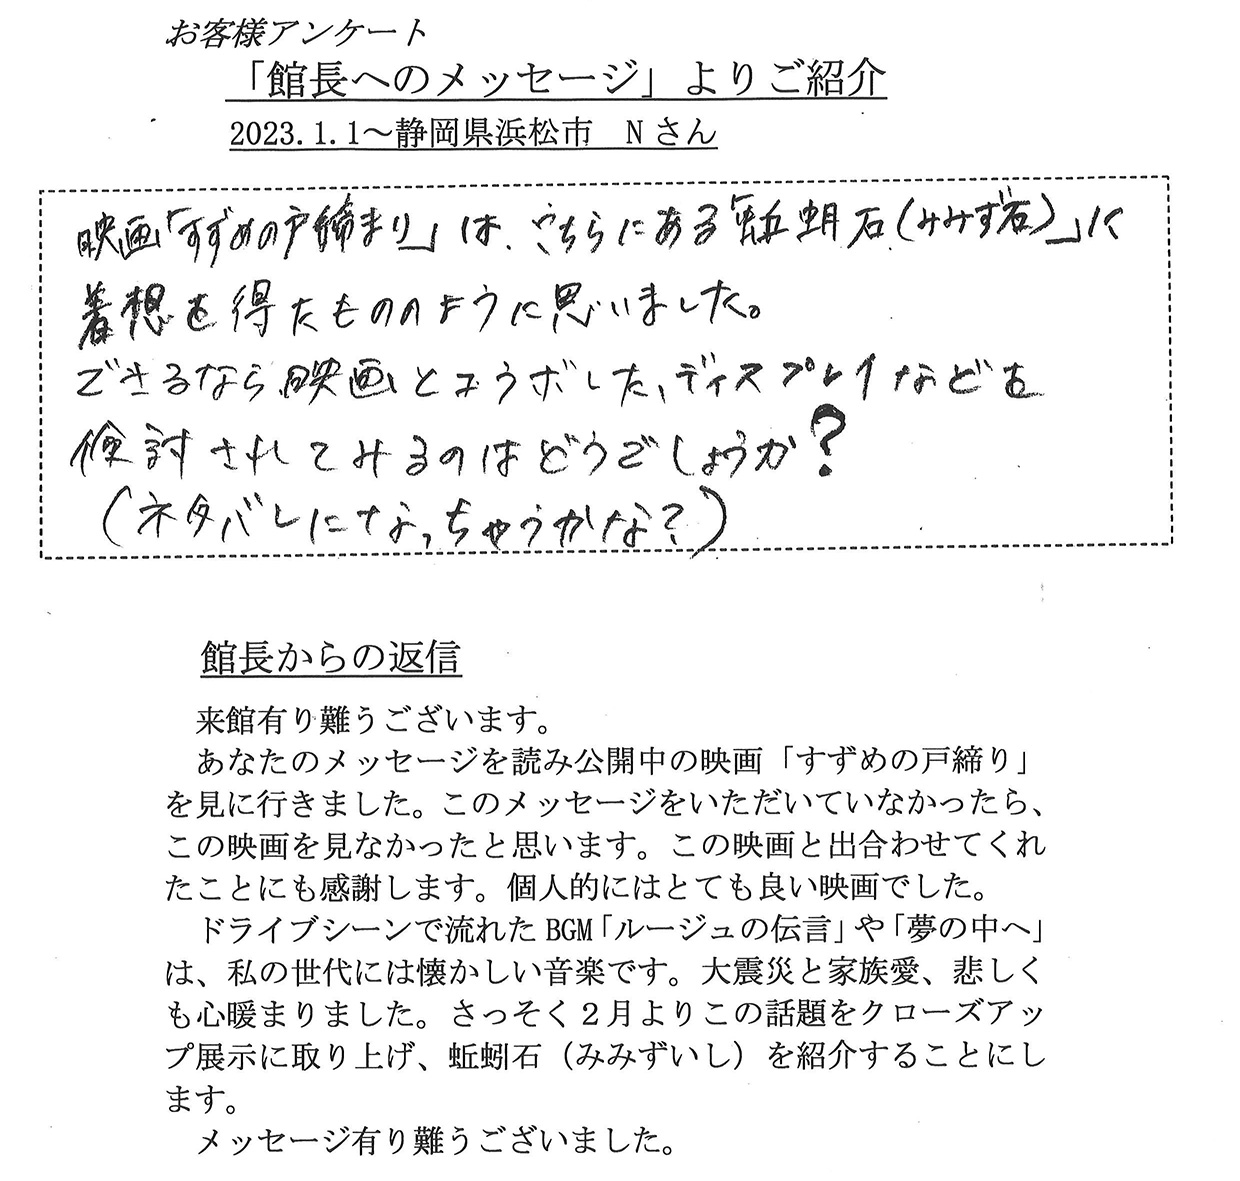 お客様アンケート
「館長へのメッセージ」よりご紹介
2023.1.1～静岡県浜松市　Nさん
映画「すずめの戸締まり」は、こちらにある「蚯蚓石(みみず石)」に
着想を得たもののように思いました。
できるなら映画とコラボした、ディスプレイなどを
検討されてみるのはどうでしょうか?
(ネタバレになっちゃうかな?)
館長からの返信
来館有り難うございます。
あなたのメッセージを読み公開中の映画「すずめの戸締り」
を見に行きました。このメッセージをいただいていなかったら、
この映画を見なかったと思います。この映画と出合わせてくれ
たことにも感謝します。個人的にはとても良い映画でした。
ドライブシーンで流れたBGM「ルージュの伝言」や「夢の中へ」
は、私の世代には懐かしい音楽です。大震災と家族愛、悲しく
も心暖まりました。さっそく２月よりこの話題をクローズアッ
プ展示に取り上げ、蚯蚓石（みみずいし）を紹介することにし
ます。
メッセージ有り難うございました。